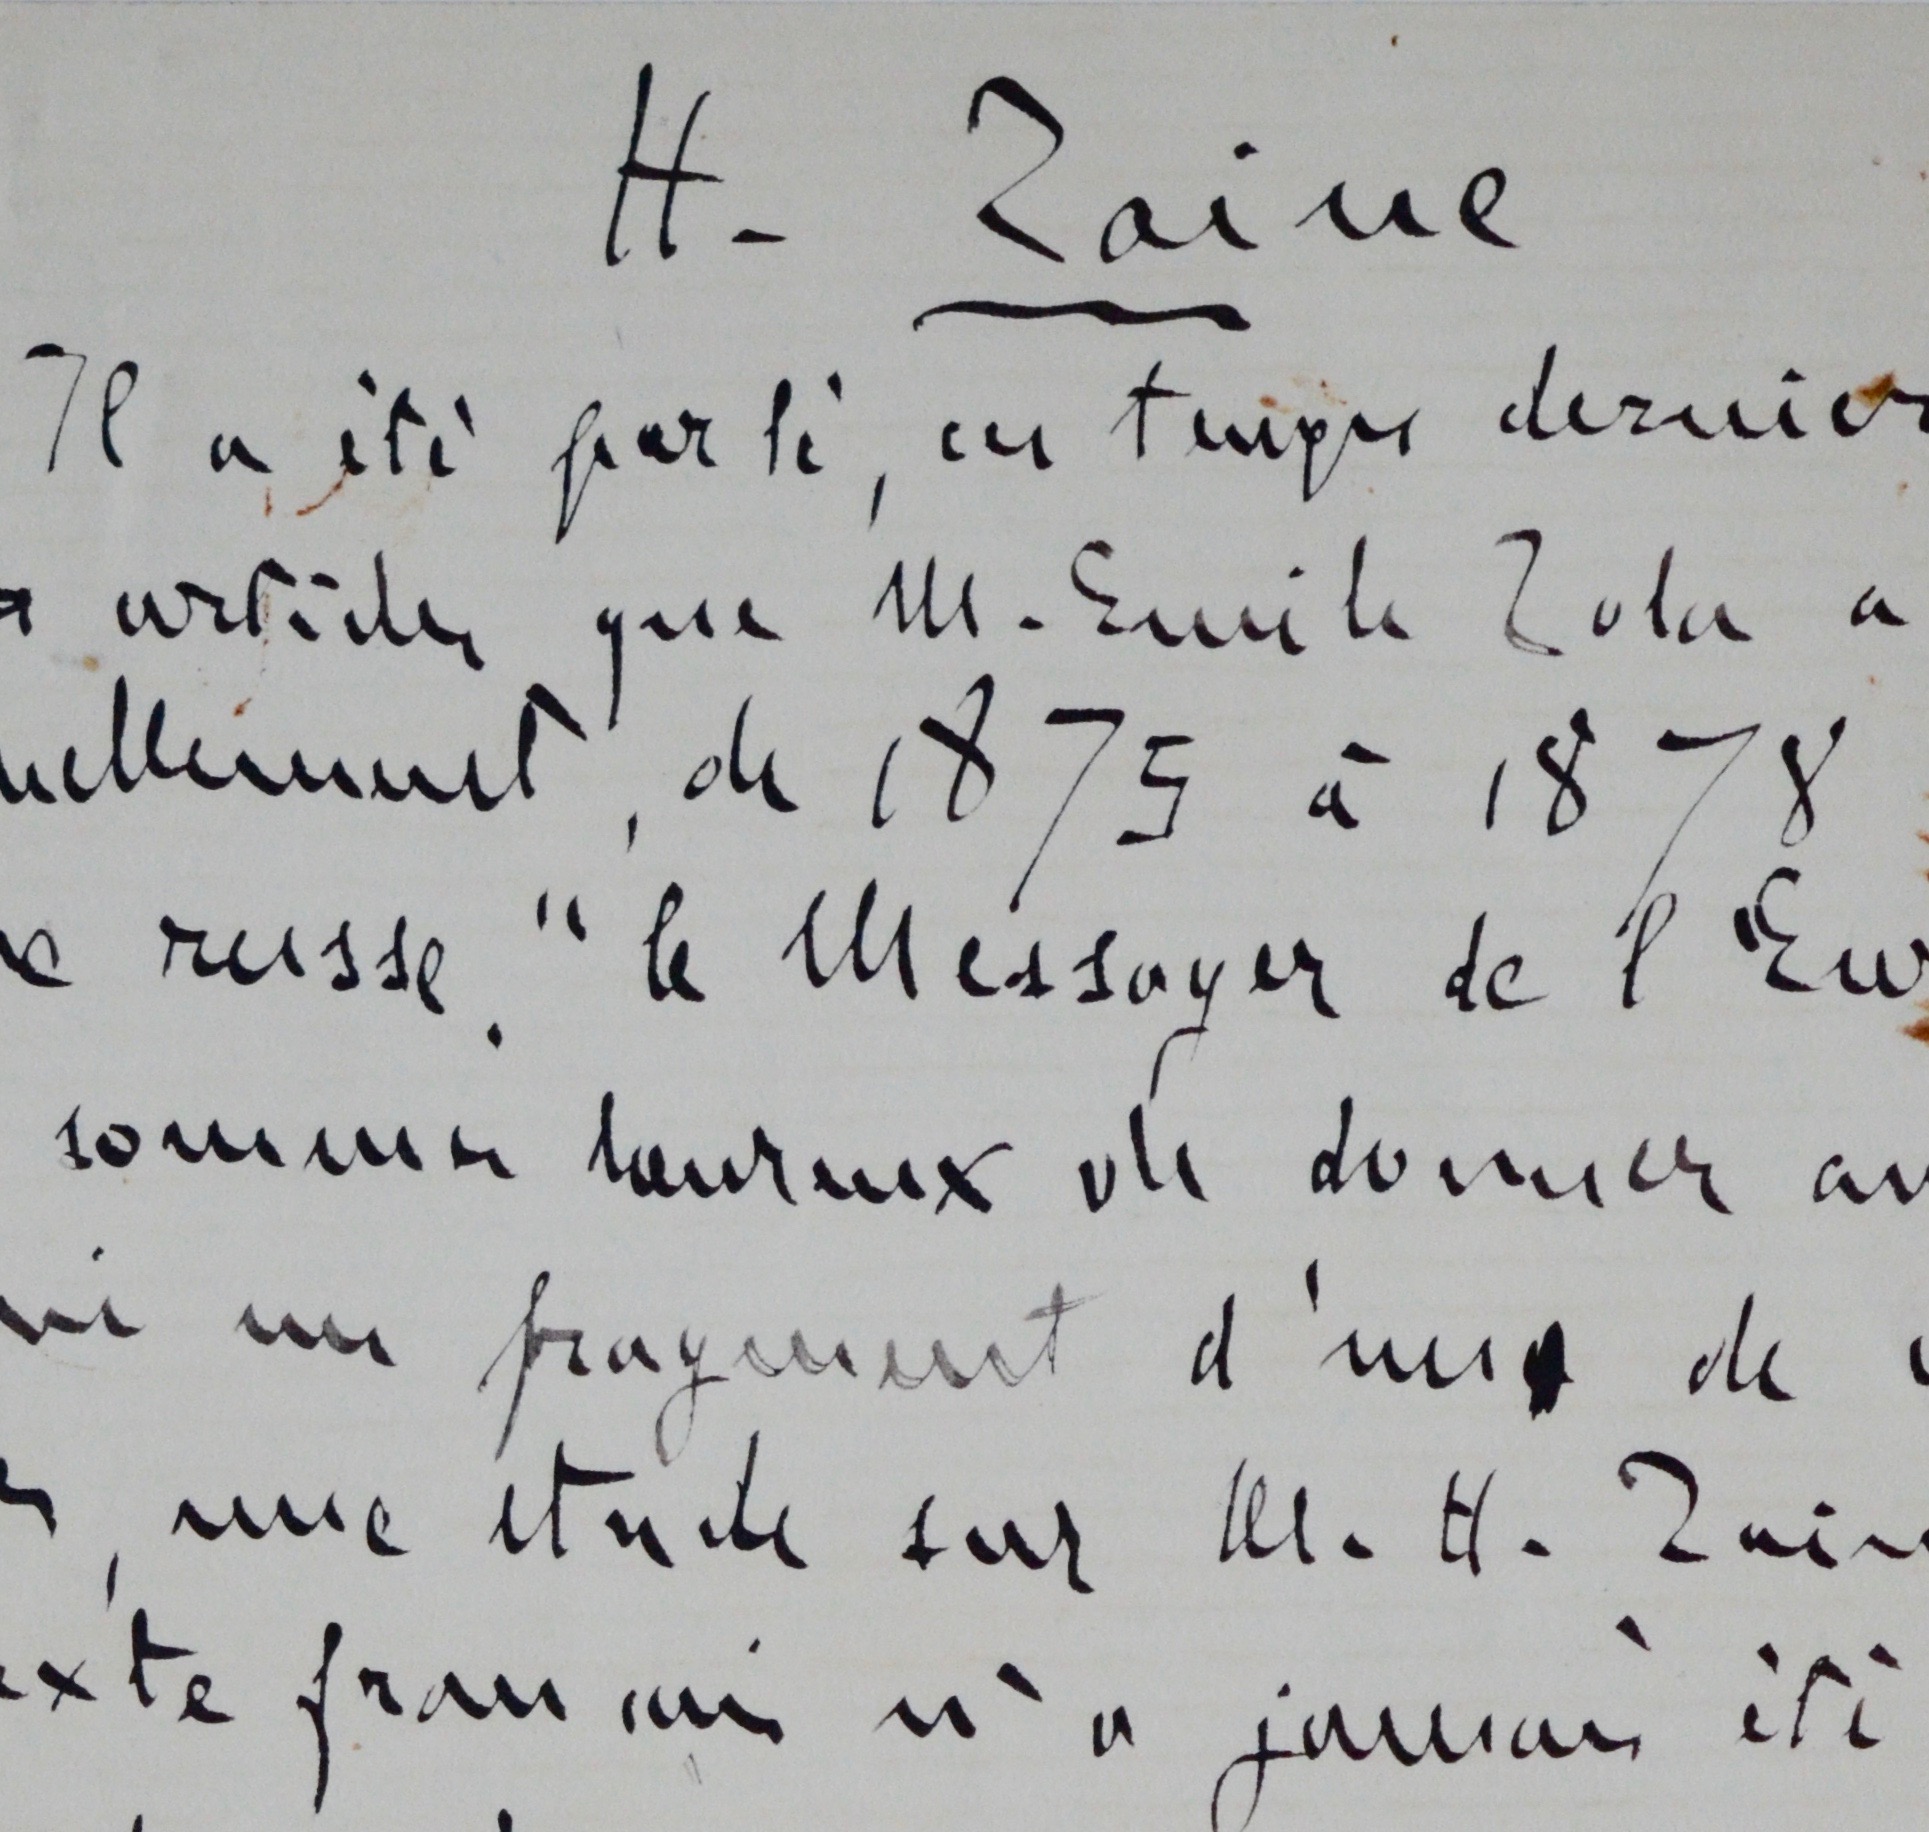 H. Taine
Il a été parlé, ces temps dernier
articles que M. Emile Zola a
uellement, de 1875 à 1878
russe, "le Messager de l'Eur
sommes heureux de donner au
un fragment d'une de
, une étude sur M. H. Tain
exte français n'a jamais été